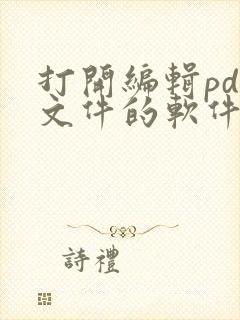 打開編輯pd
文件的軟件
詩禮